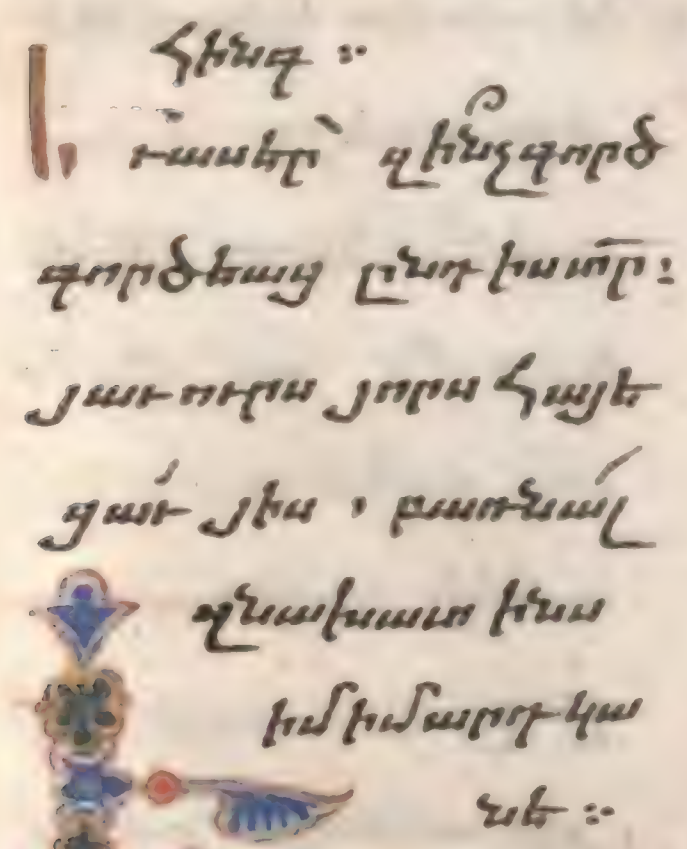 հինգ ։
ւասէր՝ զի՞նչգործ
գործեաց ընդ իս տ̅ր։
յաւուրս յորս հայե
ցաւ յիս , բառնալ
զնախատ ինս
իմ իմարդկա
նէ ։